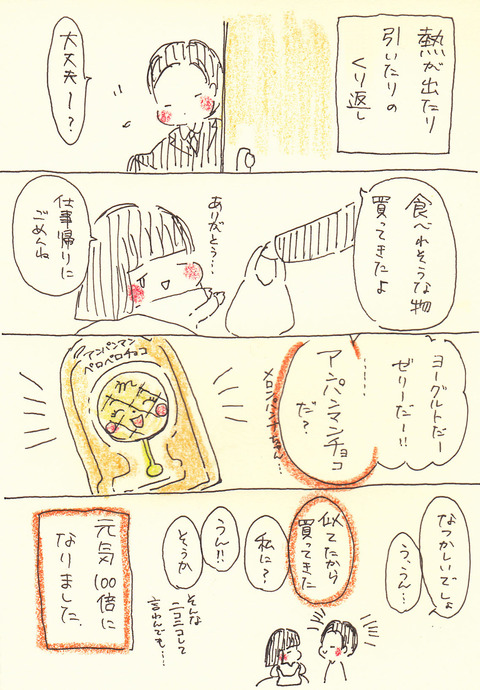 熱が出たり
引いたりの
くり返し
大丈夫〜？
食べれそうな物
買ってきたよ
ありがとう…
仕事帰りに
ごめんね
ヨーグルトだー
ゼリーだー!!
……
アンパンマンチョコ
だ？
メロンパンナちゃん…
アンパンマン
ペロペロチョコ
なつかしいでしょ
う、うん…
似てたから
買ってきた
私に？
うん!!
そうか
そんな
ニコニコして
言わんでも…
元気100倍に
なりました